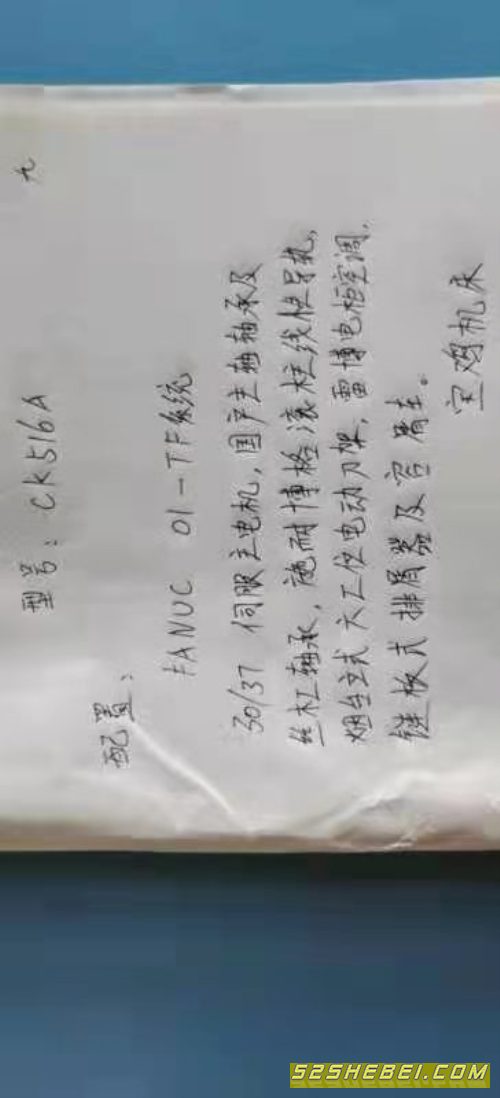 九
型号：CK516A
配置：
FANUC 01-TF系统
30/37 伺服主电机，国产主轴轴承及
丝杠轴承，施耐博格滚柱线性导轨，
烟台立式六工位电动刀架，雷博电柜空调，
链板式排屑器及容屑车。
宝鸡机床
52SHEBEI.COM